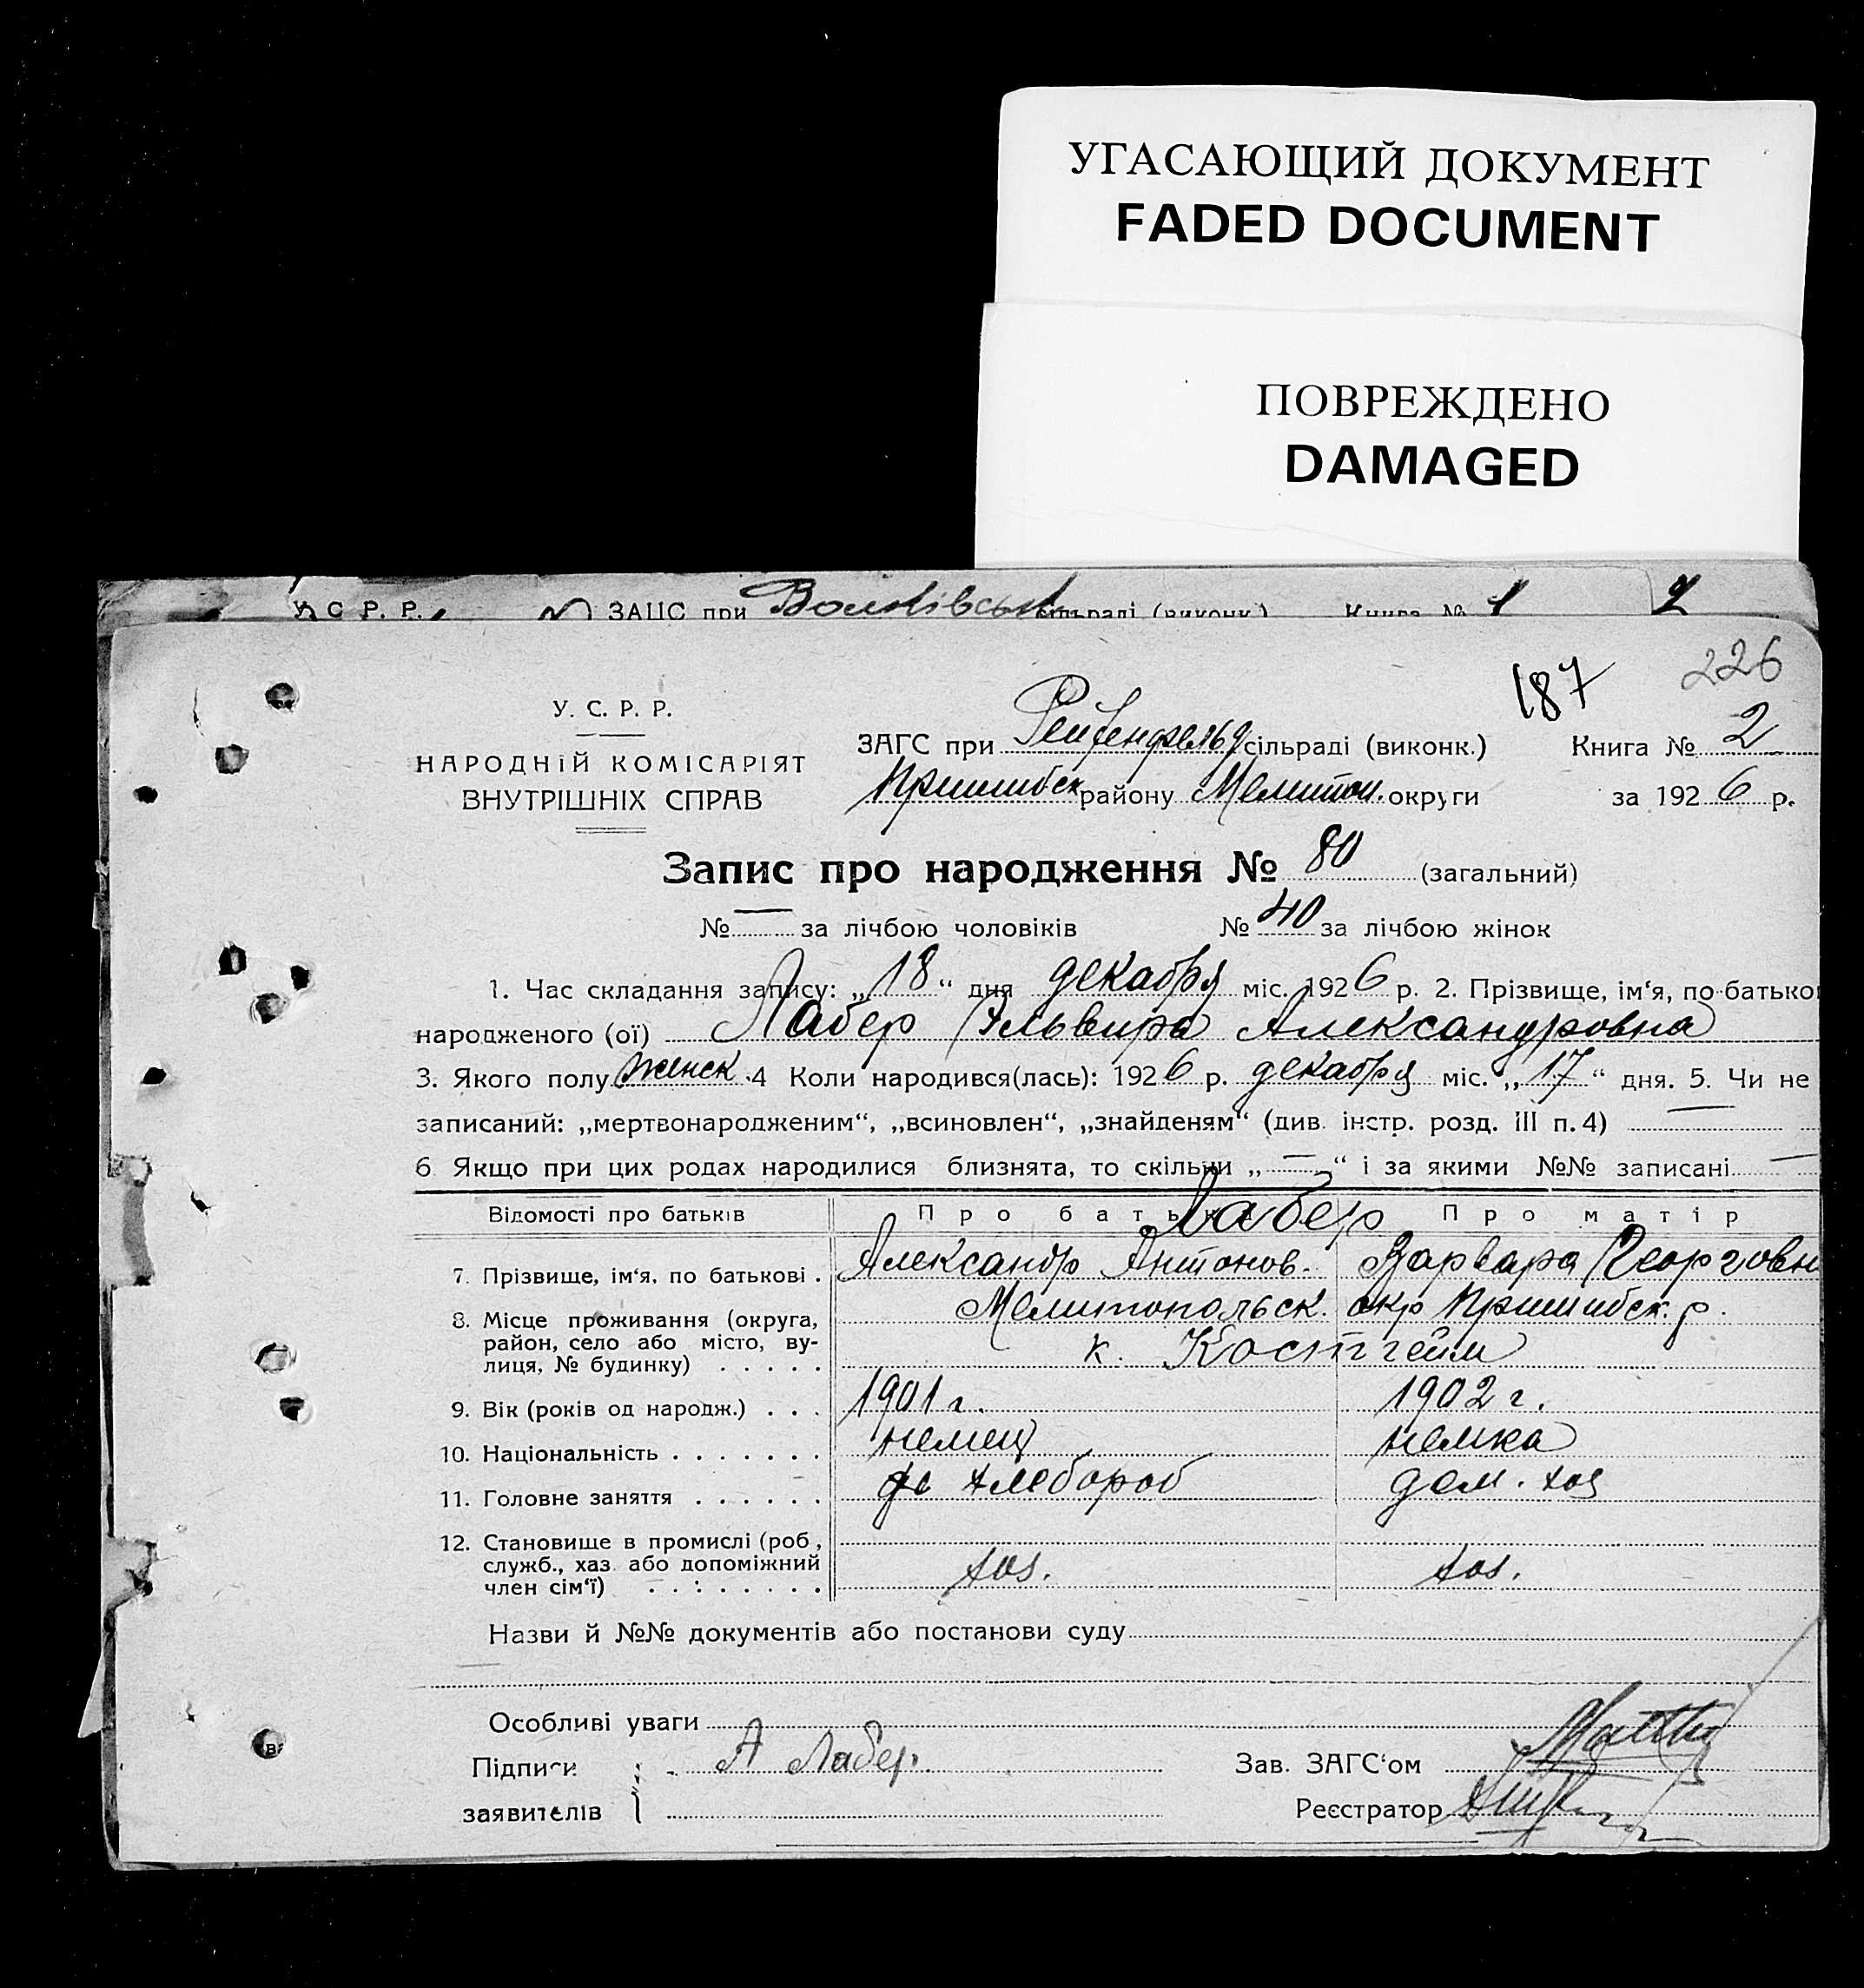 УГАСАЮЩИЙ ДОКУМЕНТ
FADED DOCUMENT
ПОВРЕЖДЕНО
DAMAGED
У С. Р. Р. ЗАЦС при сільраді (виконк.) Книга № 1 2
187 226
У. С. Р. Р.
НАРОДНІЙ КОМІСАРІЯТ
ВНУТРІШНІХ СПРАВ
ЗАГС при Рейхенфельд сільраді (виконк.) Книга № 2
Пришибск району Мелитоп. округи за 1926 р.
Запис про народження № 80 (загальний)
№ — за лічбою чоловіків № 40 за лічбою жінок
1. Час складання запису: „18“ дня декабря міс. 1926 р. 2. Прізвище, ім‘я, по-батько
народженого (ої) Лабер Эльвира Александровна
3. Якого полу женск. 4 Коли народився(лась): 1926 р. декабря міс. „17“ дня. 5. Чи не
записаний: „мертвонародженим“, „всиновлен“, „знайденям“ (див. інстр. розд. III п. 4) —
6. Якщо при цих родах народилися близнята, то скільки „—“ і за якими №№ записані —
Відомості про батьків Про батька Про матір
Лабер
7. Прізвище, ім‘я, по батькові . Александр Антонов. Варвара Георговн
8. Місце проживання (округа, район, село або місто, вулиця, № будинку) . . . . . Мелитопольск. окр Пришибск. р.
к. Костгейм
9. Вік (років од народж.) . . . 1901 г. 1902 г.
10. Національність . . . . . . . немец немка
11. Головне заняття . . . . . . хлебороб дом. хоз
12. Становище в промислі (роб., служб., хаз. або допоміжний член сім‘ї) . . . . . . . . хоз. хоз.
Назви й №№ документів або постанови суду
Особливі уваги
Підписи А Лабер. Зав. ЗАГС‘ом
заявителів Реєстратор